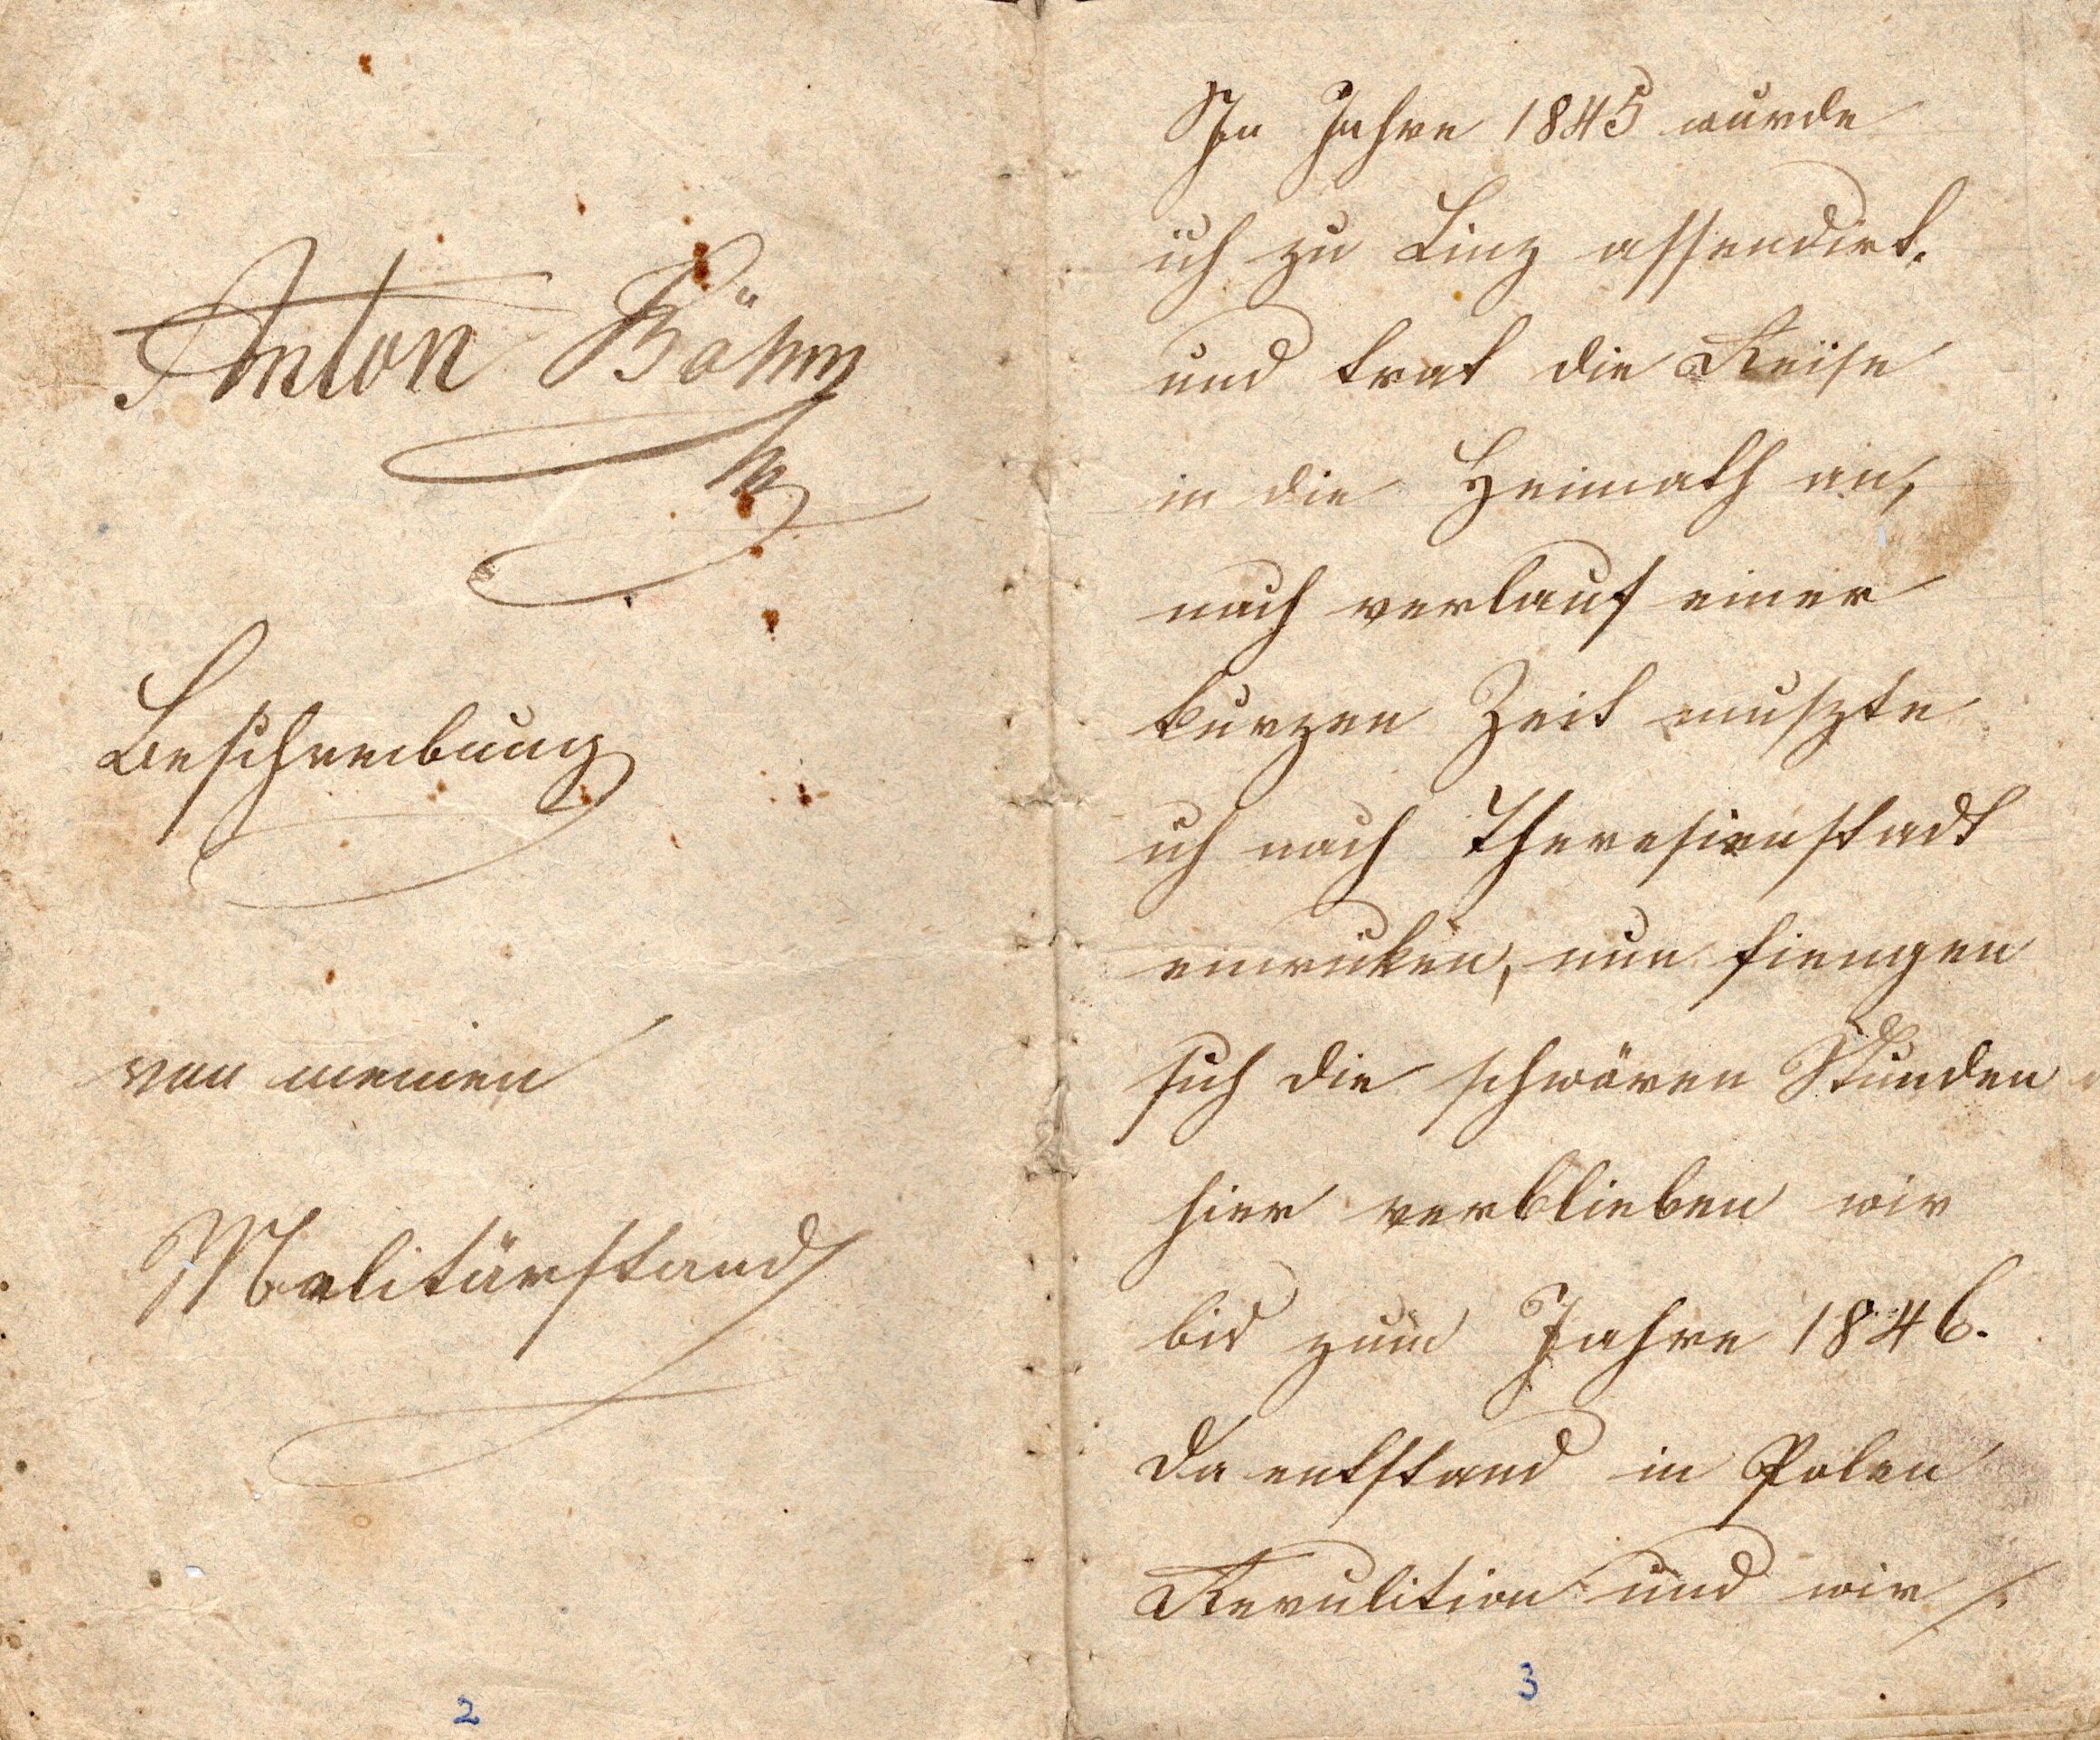 Anton Böhm
Beschreibung
von meinen
Malitärstand
2
In Jahre 1845 wurde
ich zu Linz assendirt.
und trat die Reise
in die Heimath an,
nach verlauf einer
kurzen Zeit muszte
ich nach Theresienstadt
einruken, nun fiengen
sich die schwären Stunden
hier verblieben wir
bis zum Jahre 1846.
da entstand in Polen
Revulition und wir /.
3